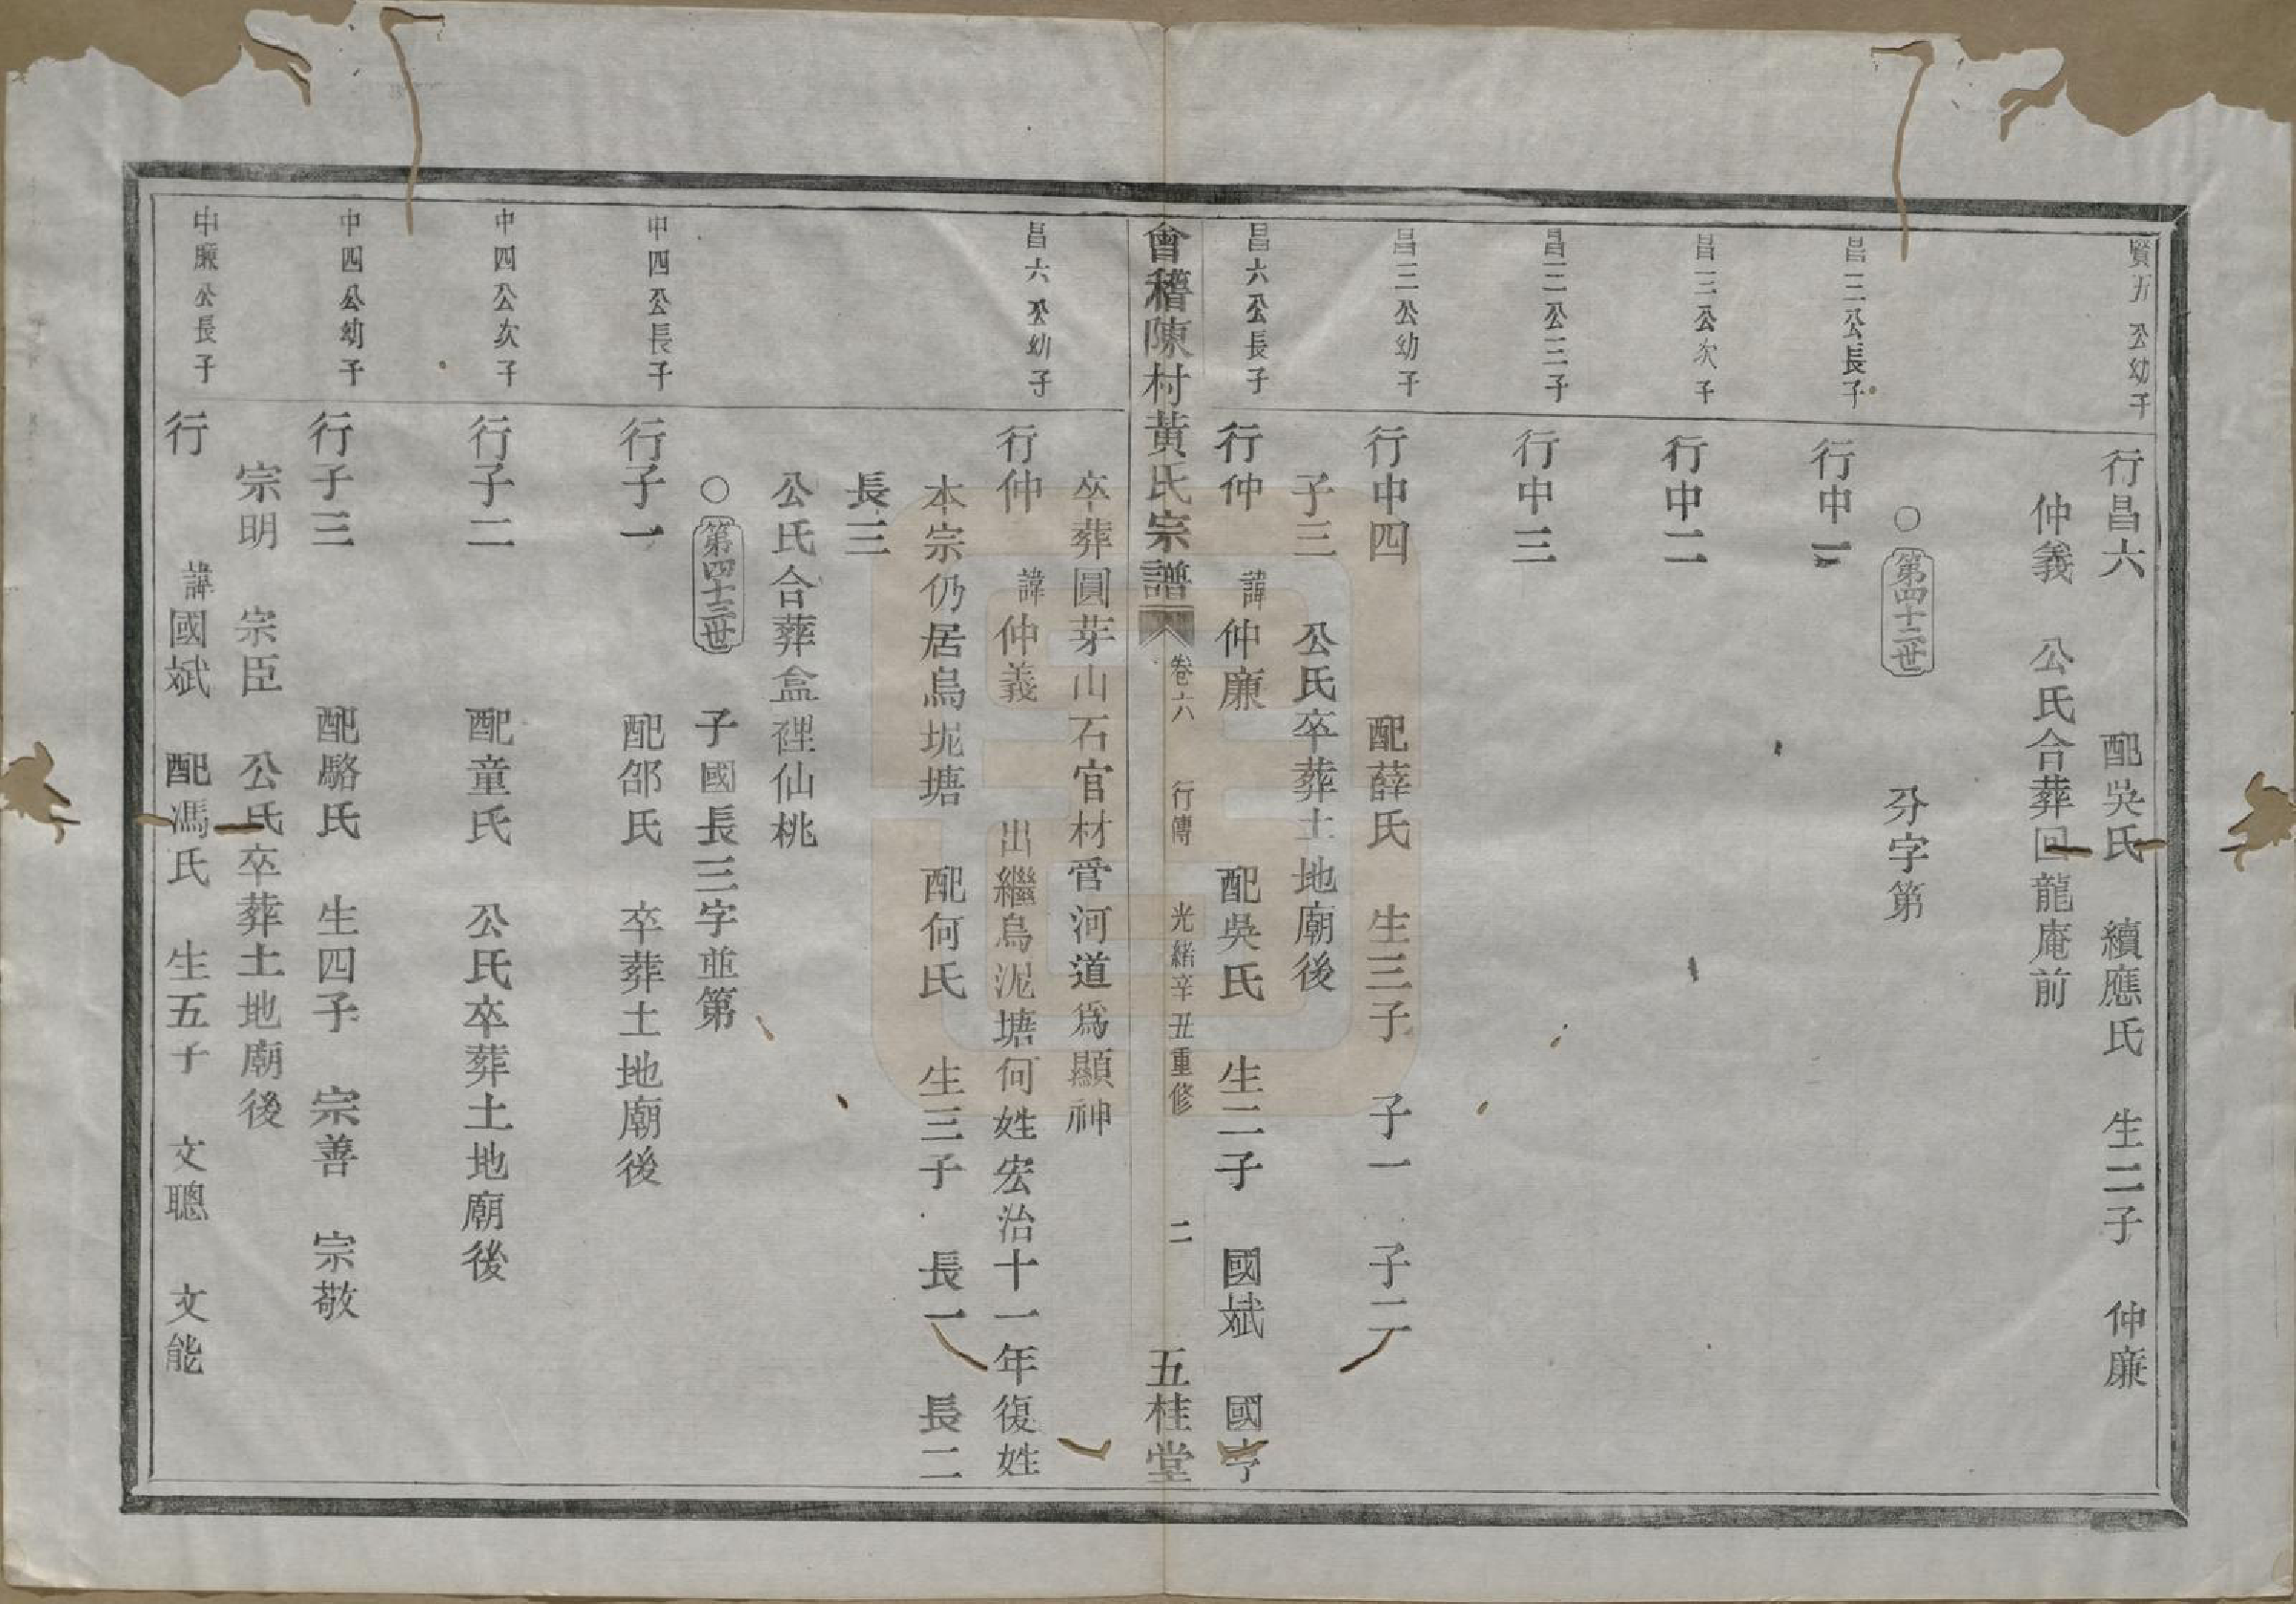 賢五公幼子
行昌六　配吳氏　續應氏　生二子　仲廉
仲義　公氏合葬回龍庵前
○第四十二世　分字第
昌三公長子
行中一
昌三公次子
行中二
昌三公三子
行中三
昌三公幼子
行中四　配薛氏　生三子　子一　子二
子三　公氏卒葬土地廟後
昌六公長子
行仲　諱仲廉　配吳氏　生二子　國斌　國亨
會稽陳村黃氏宗譜　卷六　行傳　光緒辛丑重修　二　五桂堂
卒葬圓芽山石官材營河道為顯神
昌六公幼子
行仲　諱仲義　出繼烏泥塘何姓宏治十一年復姓
本宗仍居烏坭塘　配何氏　生三子　長一　長二
長三
公氏合葬盒裡仙桃
○第四十三世　子國長三字並第
中四公長子
行子一　配邵氏　卒葬土地廟後
中四公次子
行子二　配童氏　公氏卒葬土地廟後
中四公幼子
行子三　配駱氏　生四子　宗善　宗敬
宗明　宗臣　公氏卒葬土地廟後
中廉公長子
行　諱國斌　配馮氏　生五子　文聰　文能